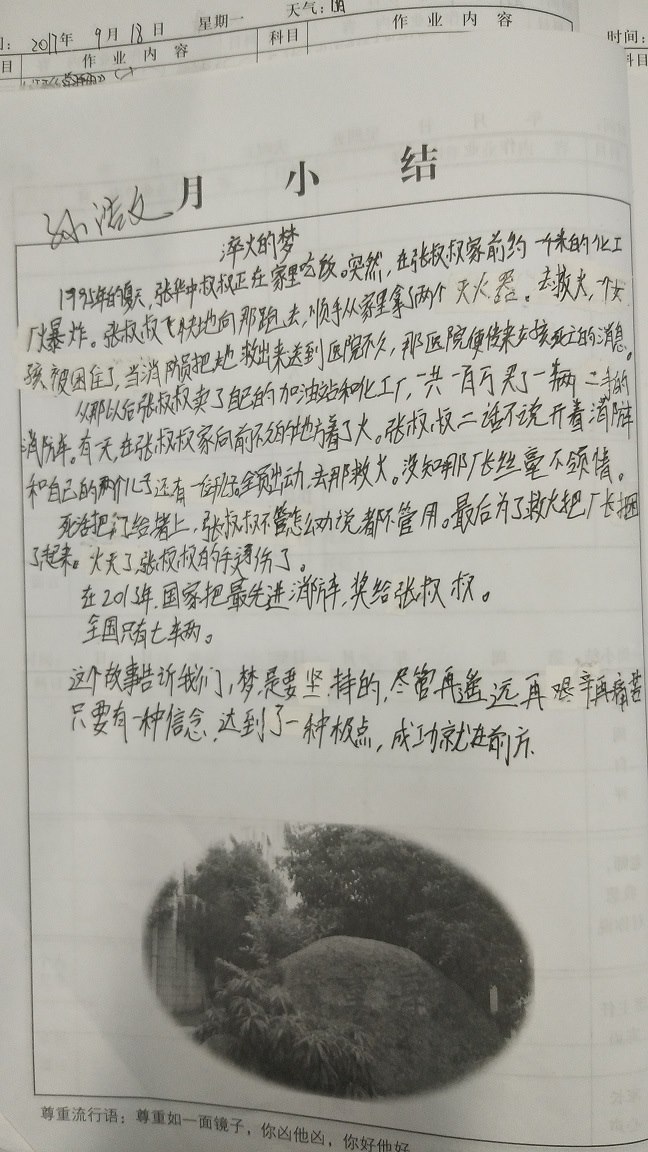 2017年 9月18日 星期一 天气：阴
时间：
目 作业内容 科目 作业内容
科目
月小结
淬火的梦
1995年的夏天,张华中叔叔正在家里吃饭。突然,在张叔叔家前约一千米的化工
厂爆炸。张叔叔飞快地向那跑去,顺手从家里拿了两个灭火器。去救火,一个女
孩被困住了,当消防员把她救出来送到医院不久,那医院便传来女孩死亡的消息。
从那以后张叔叔卖了自己的加油站和化工厂,一共一百万买了一辆二手的
消防车。有一天,在张叔叔家向前不久的地方着了火。张叔叔二话不说开着消防车
和自己的两个儿子还有一位班。全员出动,去那救火。没知那厂长丝毫不领情。
死活把门给堵上,张叔叔不管怎么劝说都不管用。最后为了救火把厂长捆
了起来。火灭了张叔叔的手受伤了。
在2013年,国家把最先进消防车,奖给张叔叔。
全国只有七辆。
这个故事告诉我们,梦是要坚持的,尽管再遥远再艰辛再痛苦
只要有一种信念,达到了一种极点,成功就在前方
尊重流行语：尊重如一面镜子，你凶他凶，你好他好